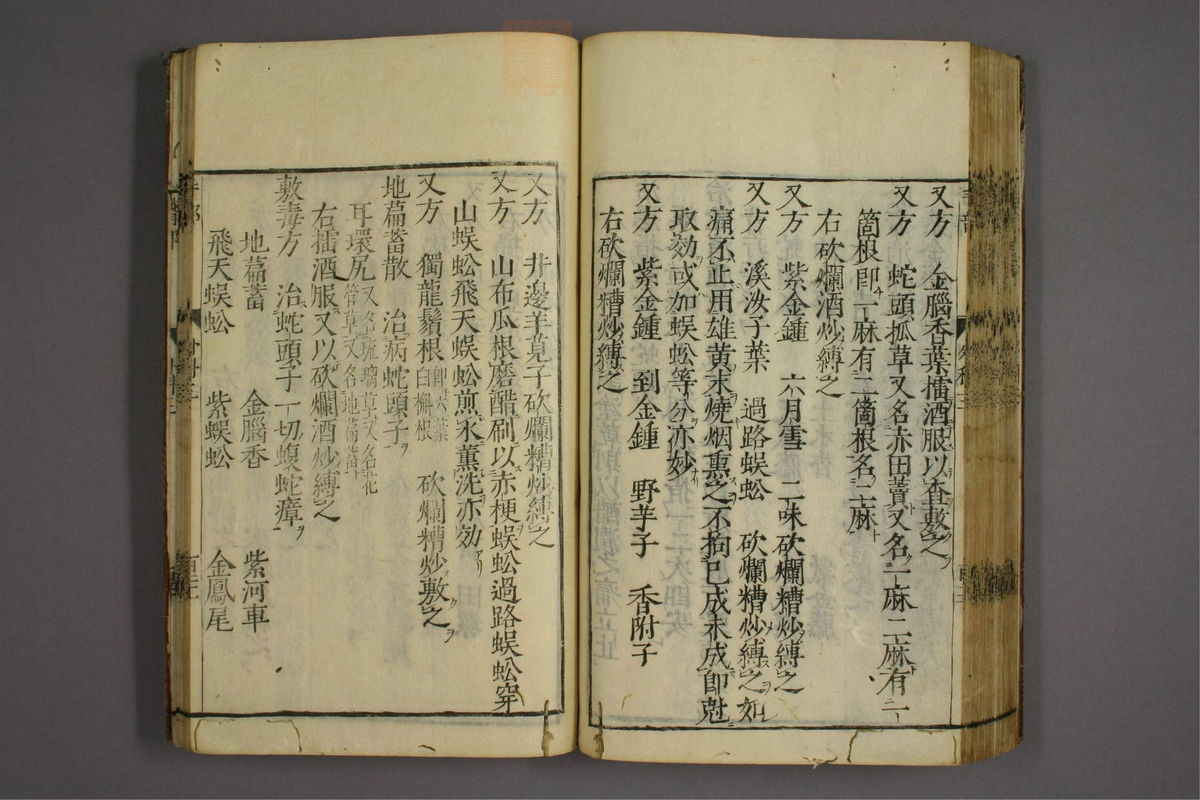 又方 金腦香葉擂酒服以查敷之
又方 蛇頭孤草又名赤田蕒又名一麻二麻有一
箇根卽一麻有二箇根名二麻
右砍爛酒炒縛之
又方 紫金鍾 六月雪 二味砍爛糟炒縛之
又方 溪汝子葉 過路蜈蚣 砍爛糟炒縛之如
痛不止用雄黄末燒烟熏之不拘已成未成卽尅
取効或加蜈蚣等分亦妙
又方 紫金鍾 到金鍾 野芋子 香附子
右砍爛糟炒縛之
又方 井邊羊莧子砍爛糟炒縛之
又方 山布瓜根磨醋刷以赤梗蜈蚣過路蜈蚣穿
山蜈蚣飛天蜈蚣煎水薰洗亦効
又方 獨龍鬚根 卽八葉白槲根 砍爛糟炒敷之
地萹蓄散 治病蛇頭子
耳環尻 又名琉璃草又名花管草又名地萹蓄
右擂酒服又以砍爛酒炒縛之
敷毒方 治蛇頭子一切蝮蛇瘴
地萹蓄 金腦香 紫河車
飛天蜈蚣 紫蜈蚣 金鳳尾